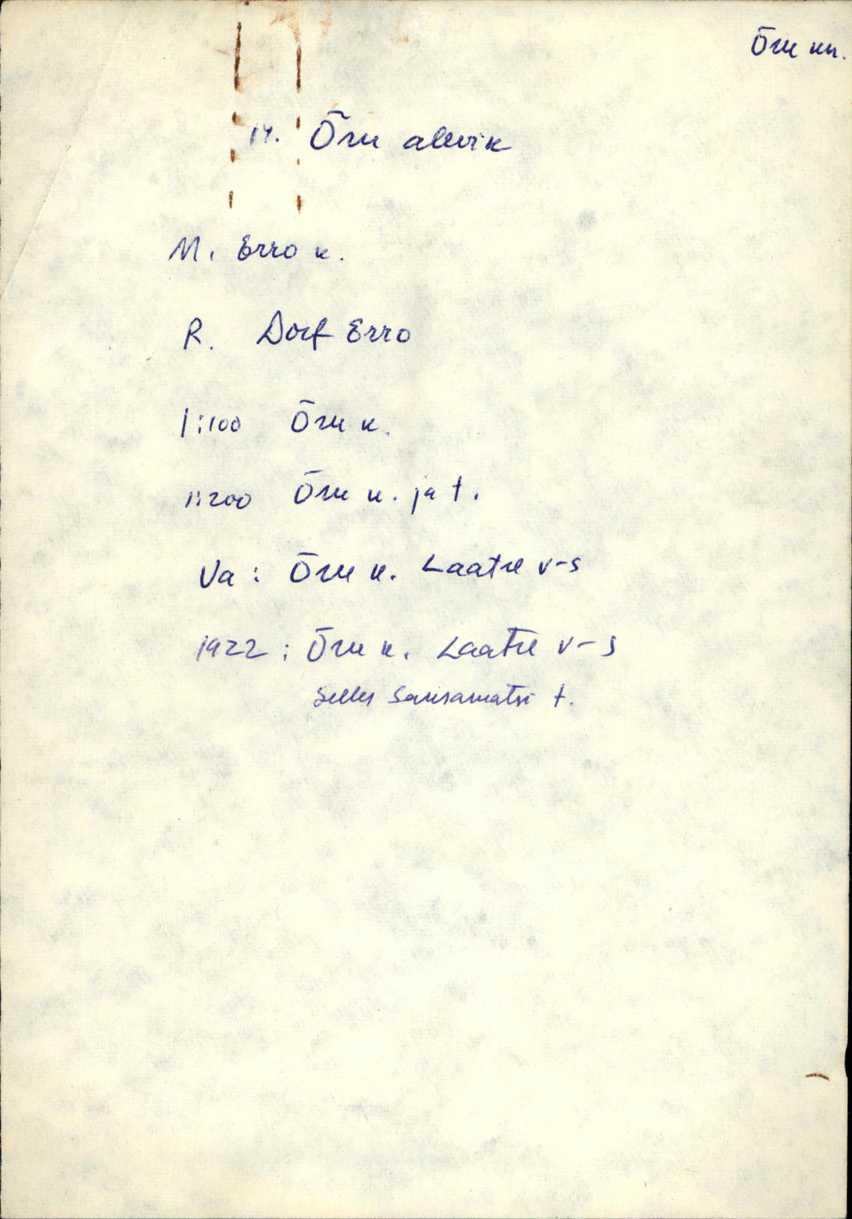 Õru kn.
14. Õru alevik
M. Erro k.
R. Dorf Erro
1:100 Õru k.
1:200 Õru k. ja t.
Va: Õru k. Laatre v-s
1922: Õru k. Laatre v-s
Selles t.